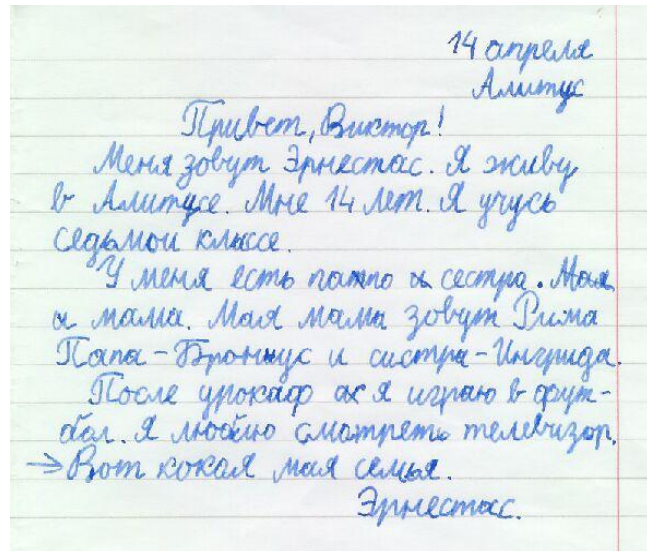 14 апреля
Алитус
Привет, Виктор!
Меня зовут Эрнестас. Я живу
в Алитусе. Мне 14 лет. Я учусь
седьмой классе.
У меня есть и сестра. Мая
и мама. Мая мама зовут Рима
Папа - и систра - Ингрида.
После я играю в фут-
бол. Я люблю смотреть телевизор.
→ Вот кокая мая семья.
Эрнестас.